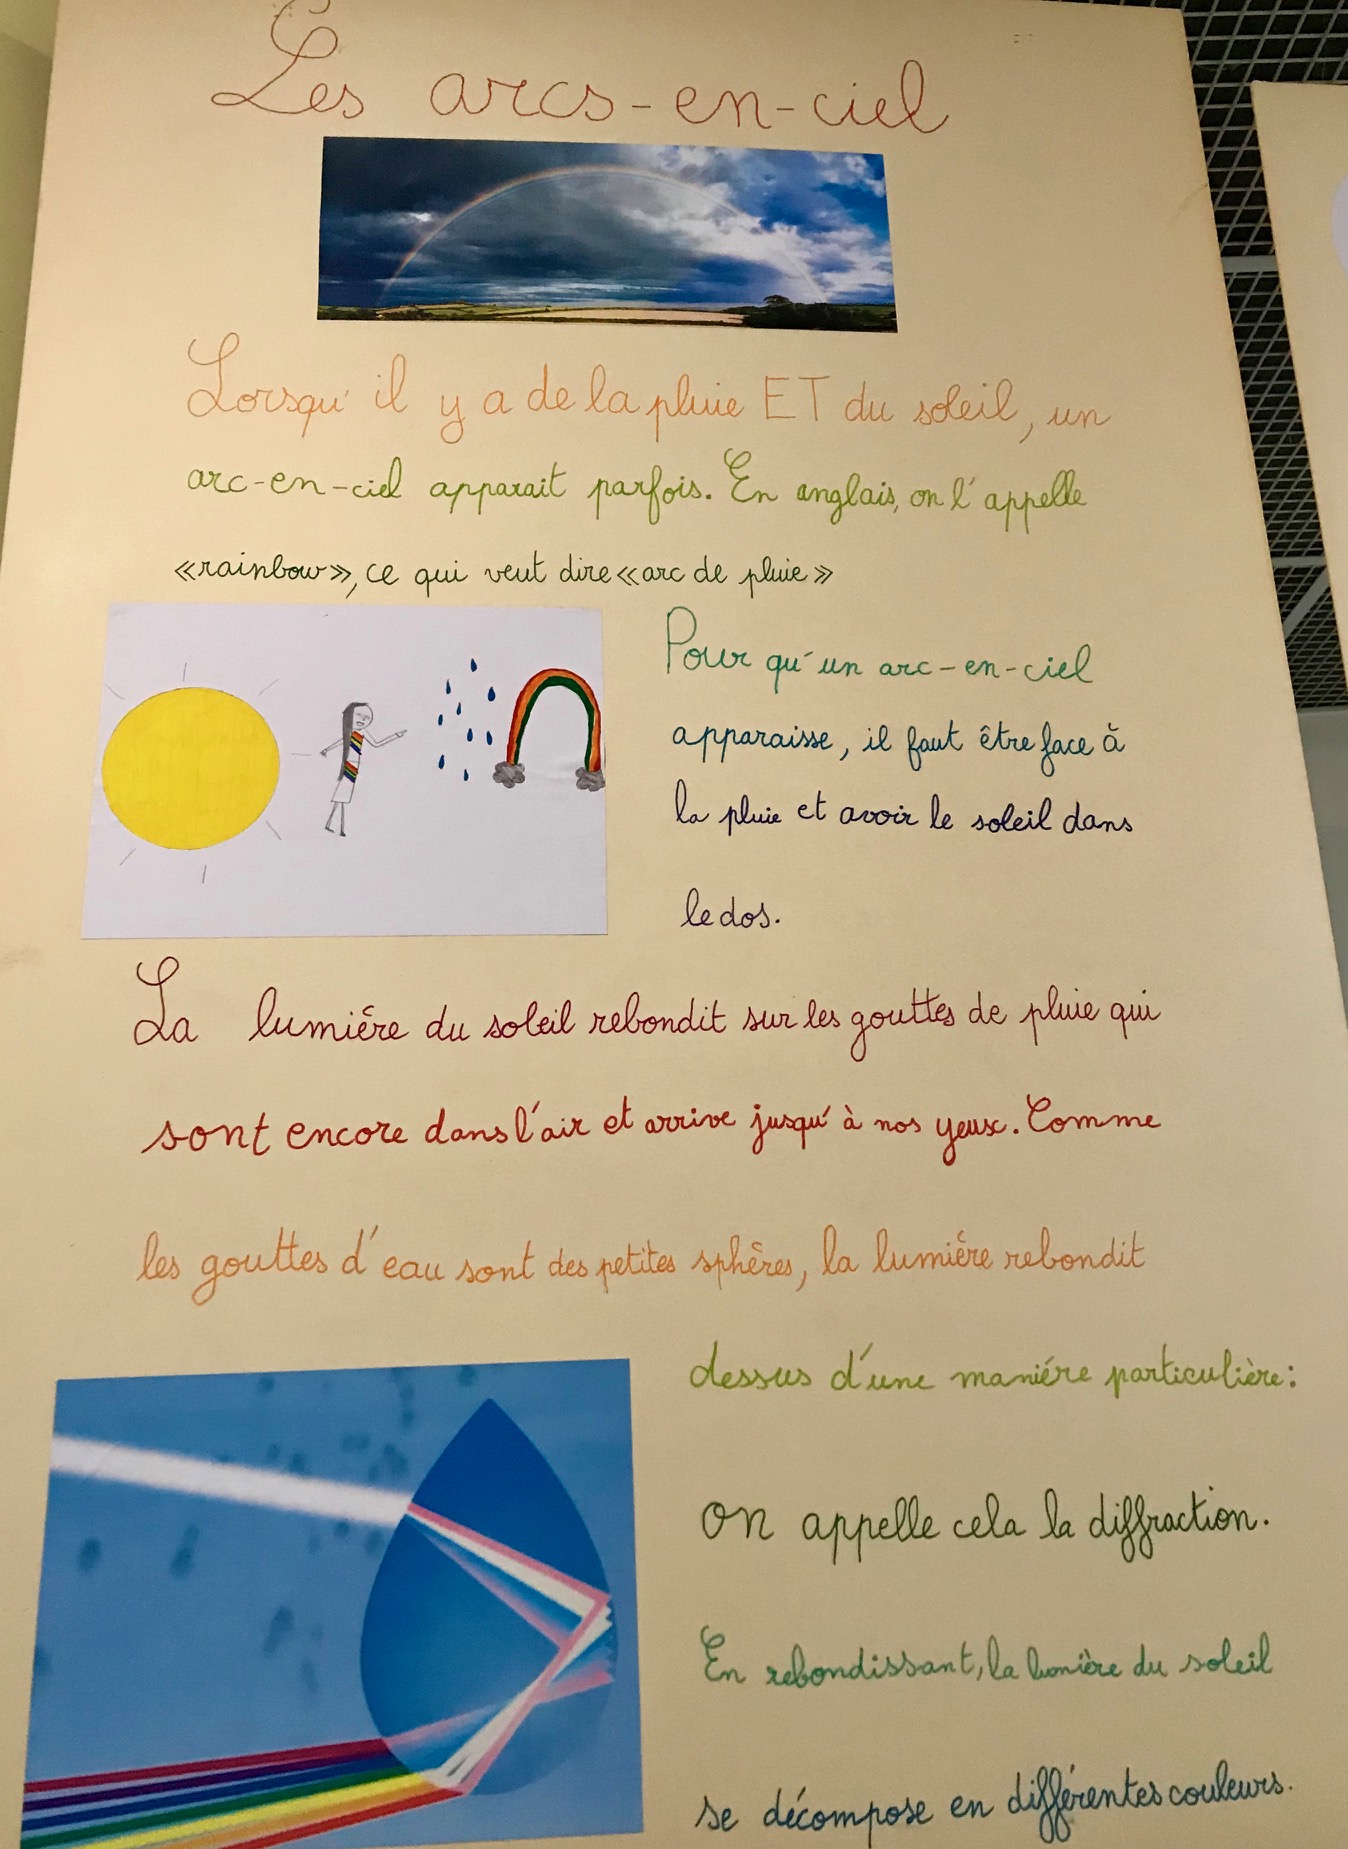 Les arcs-en-ciel
Lorsqu'il y a de la pluie ET du soleil, un
arc-en-ciel apparait parfois. En anglais, on l'appelle
«rainbow», ce qui veut dire «arc de pluie»
Pour qu'un arc-en-ciel
apparaisse, il faut être face à
la pluie et avoir le soleil dans
le dos.
La lumiére du soleil rebondit sur les gouttes de pluie qui
sont encore dans l'air et arrive jusqu'à nos yeux. Comme
les gouttes d'eau sont des petites sphères, la lumiére rebondit
dessus d'une maniére particulière:
on appelle cela la diffraction.
En rebondissant, la lumière du soleil
se décompose en différentes couleurs.